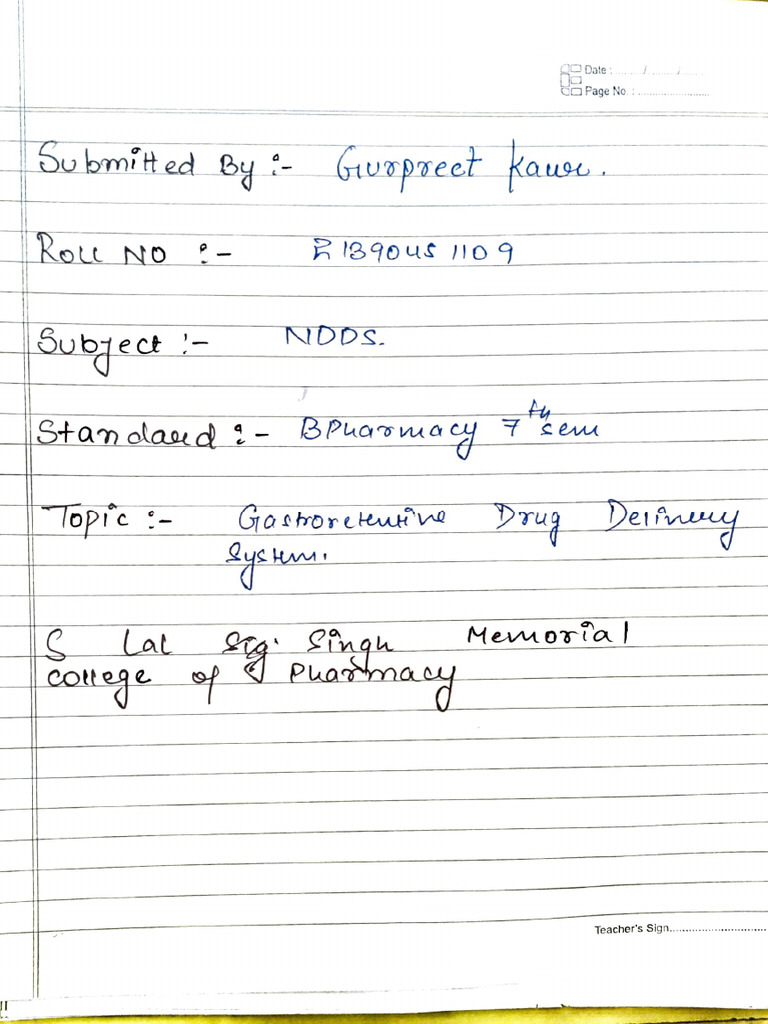 Date : ......./......./.......
Page No. : ........................
Submitted By :- Gurpreet Kaur.
Roll NO :- 1390451109
Subject :- NDDS.
Standard :- BPharmacy 7th sem
Topic :- Gastroretentive Drug Delivery
System.
S Lal Sig. Singh Memorial
college of Pharmacy
Teacher's Sign............................